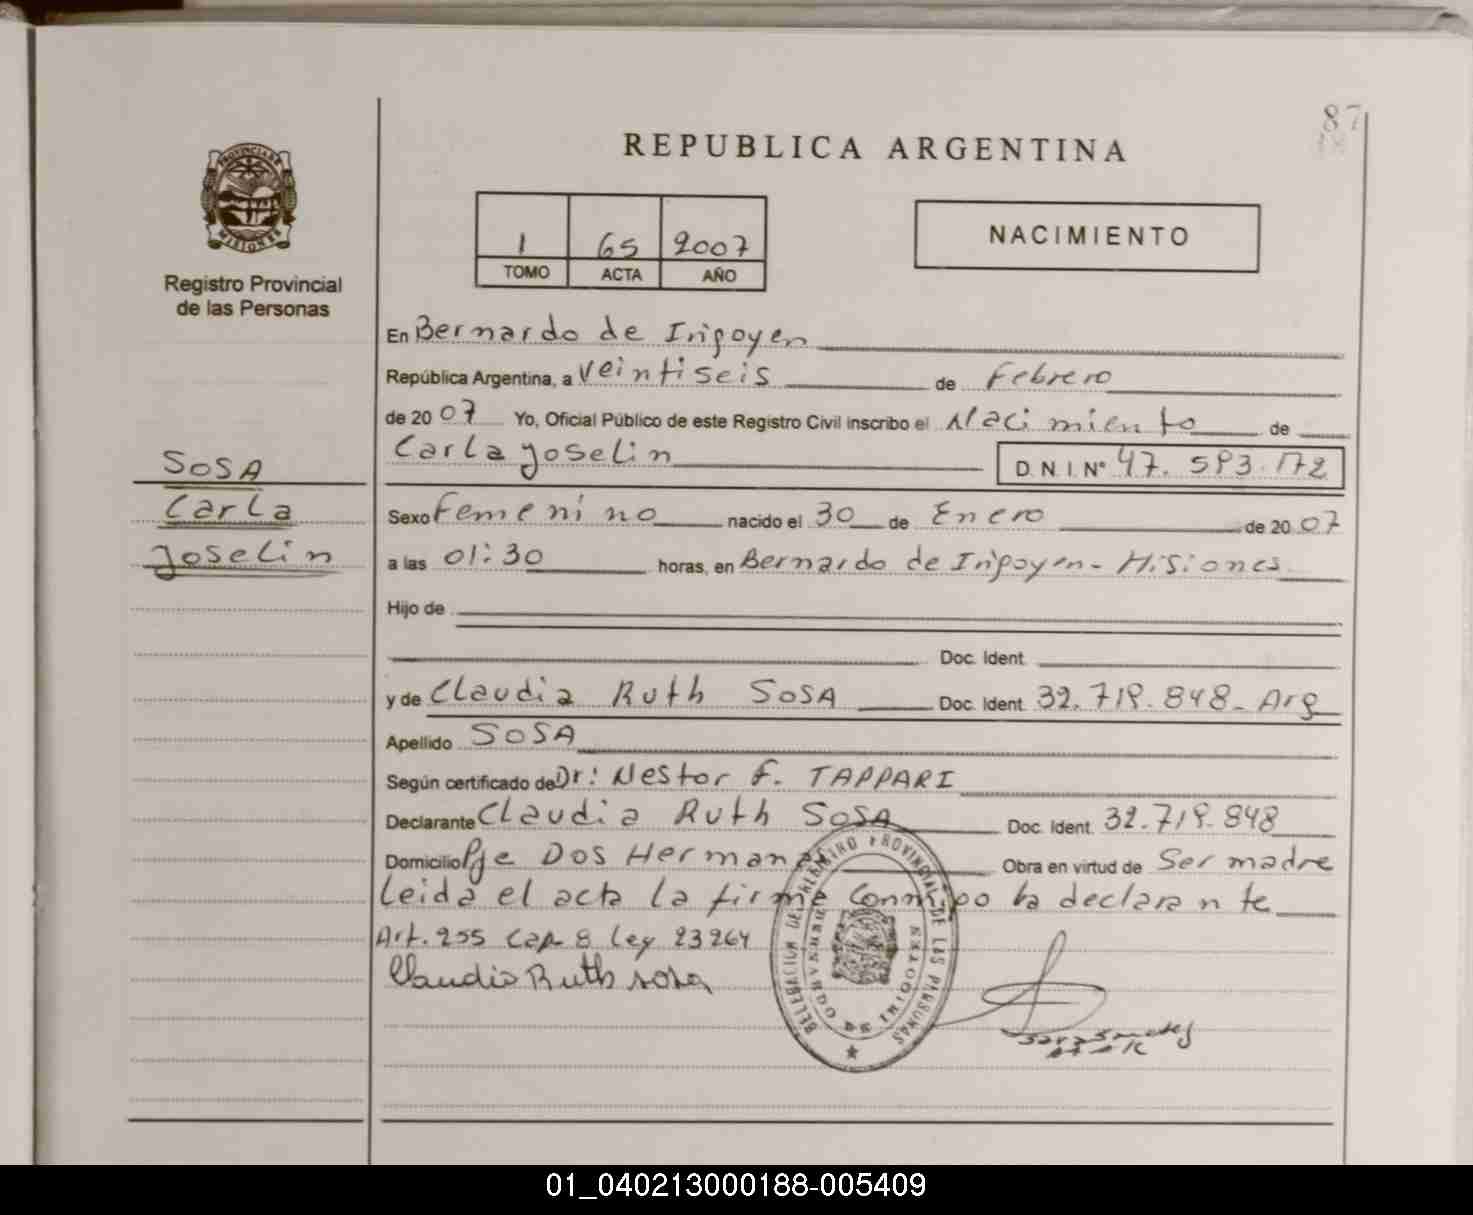 87
REPUBLICA ARGENTINA
PROVINCIA DE MISIONES
Registro Provincial
de las Personas
1 65 2007
TOMO ACTA AÑO
NACIMIENTO
En Bernardo de Irigoyen
República Argentina, a veintiseis de Febrero
de 20 07 Yo, Oficial Público de este Registro Civil inscribo el Nacimiento de
Carla Joselin D. N. I. N° 47.593.172
SOSA
Carla
Joselin
Sexo Femenino nacido el 30 de Enero de 20 07
a las 01:30 horas, en Bernardo de Irigoyen - Misiones
Hijo de
Doc. Ident.
y de Claudia Ruth SOSA Doc. Ident. 32.719.848 - Arg
Apellido SOSA
Según certificado de Dr: Nestor F. TAPPARI
Declarante Claudia Ruth SOSA Doc. Ident. 32.719.848
Domicilio Pje Dos Hermanas Obra en virtud de Ser madre
Leida el acta la firma conmigo la declarante
Art. 255 Cap 8 Ley 23264
Claudia Ruth sosa
DELEGACION DEL REGISTRO PROVINCIAL DE LAS PERSONAS
BERNARDO DE IRIGOYEN
01_040213000188-005409